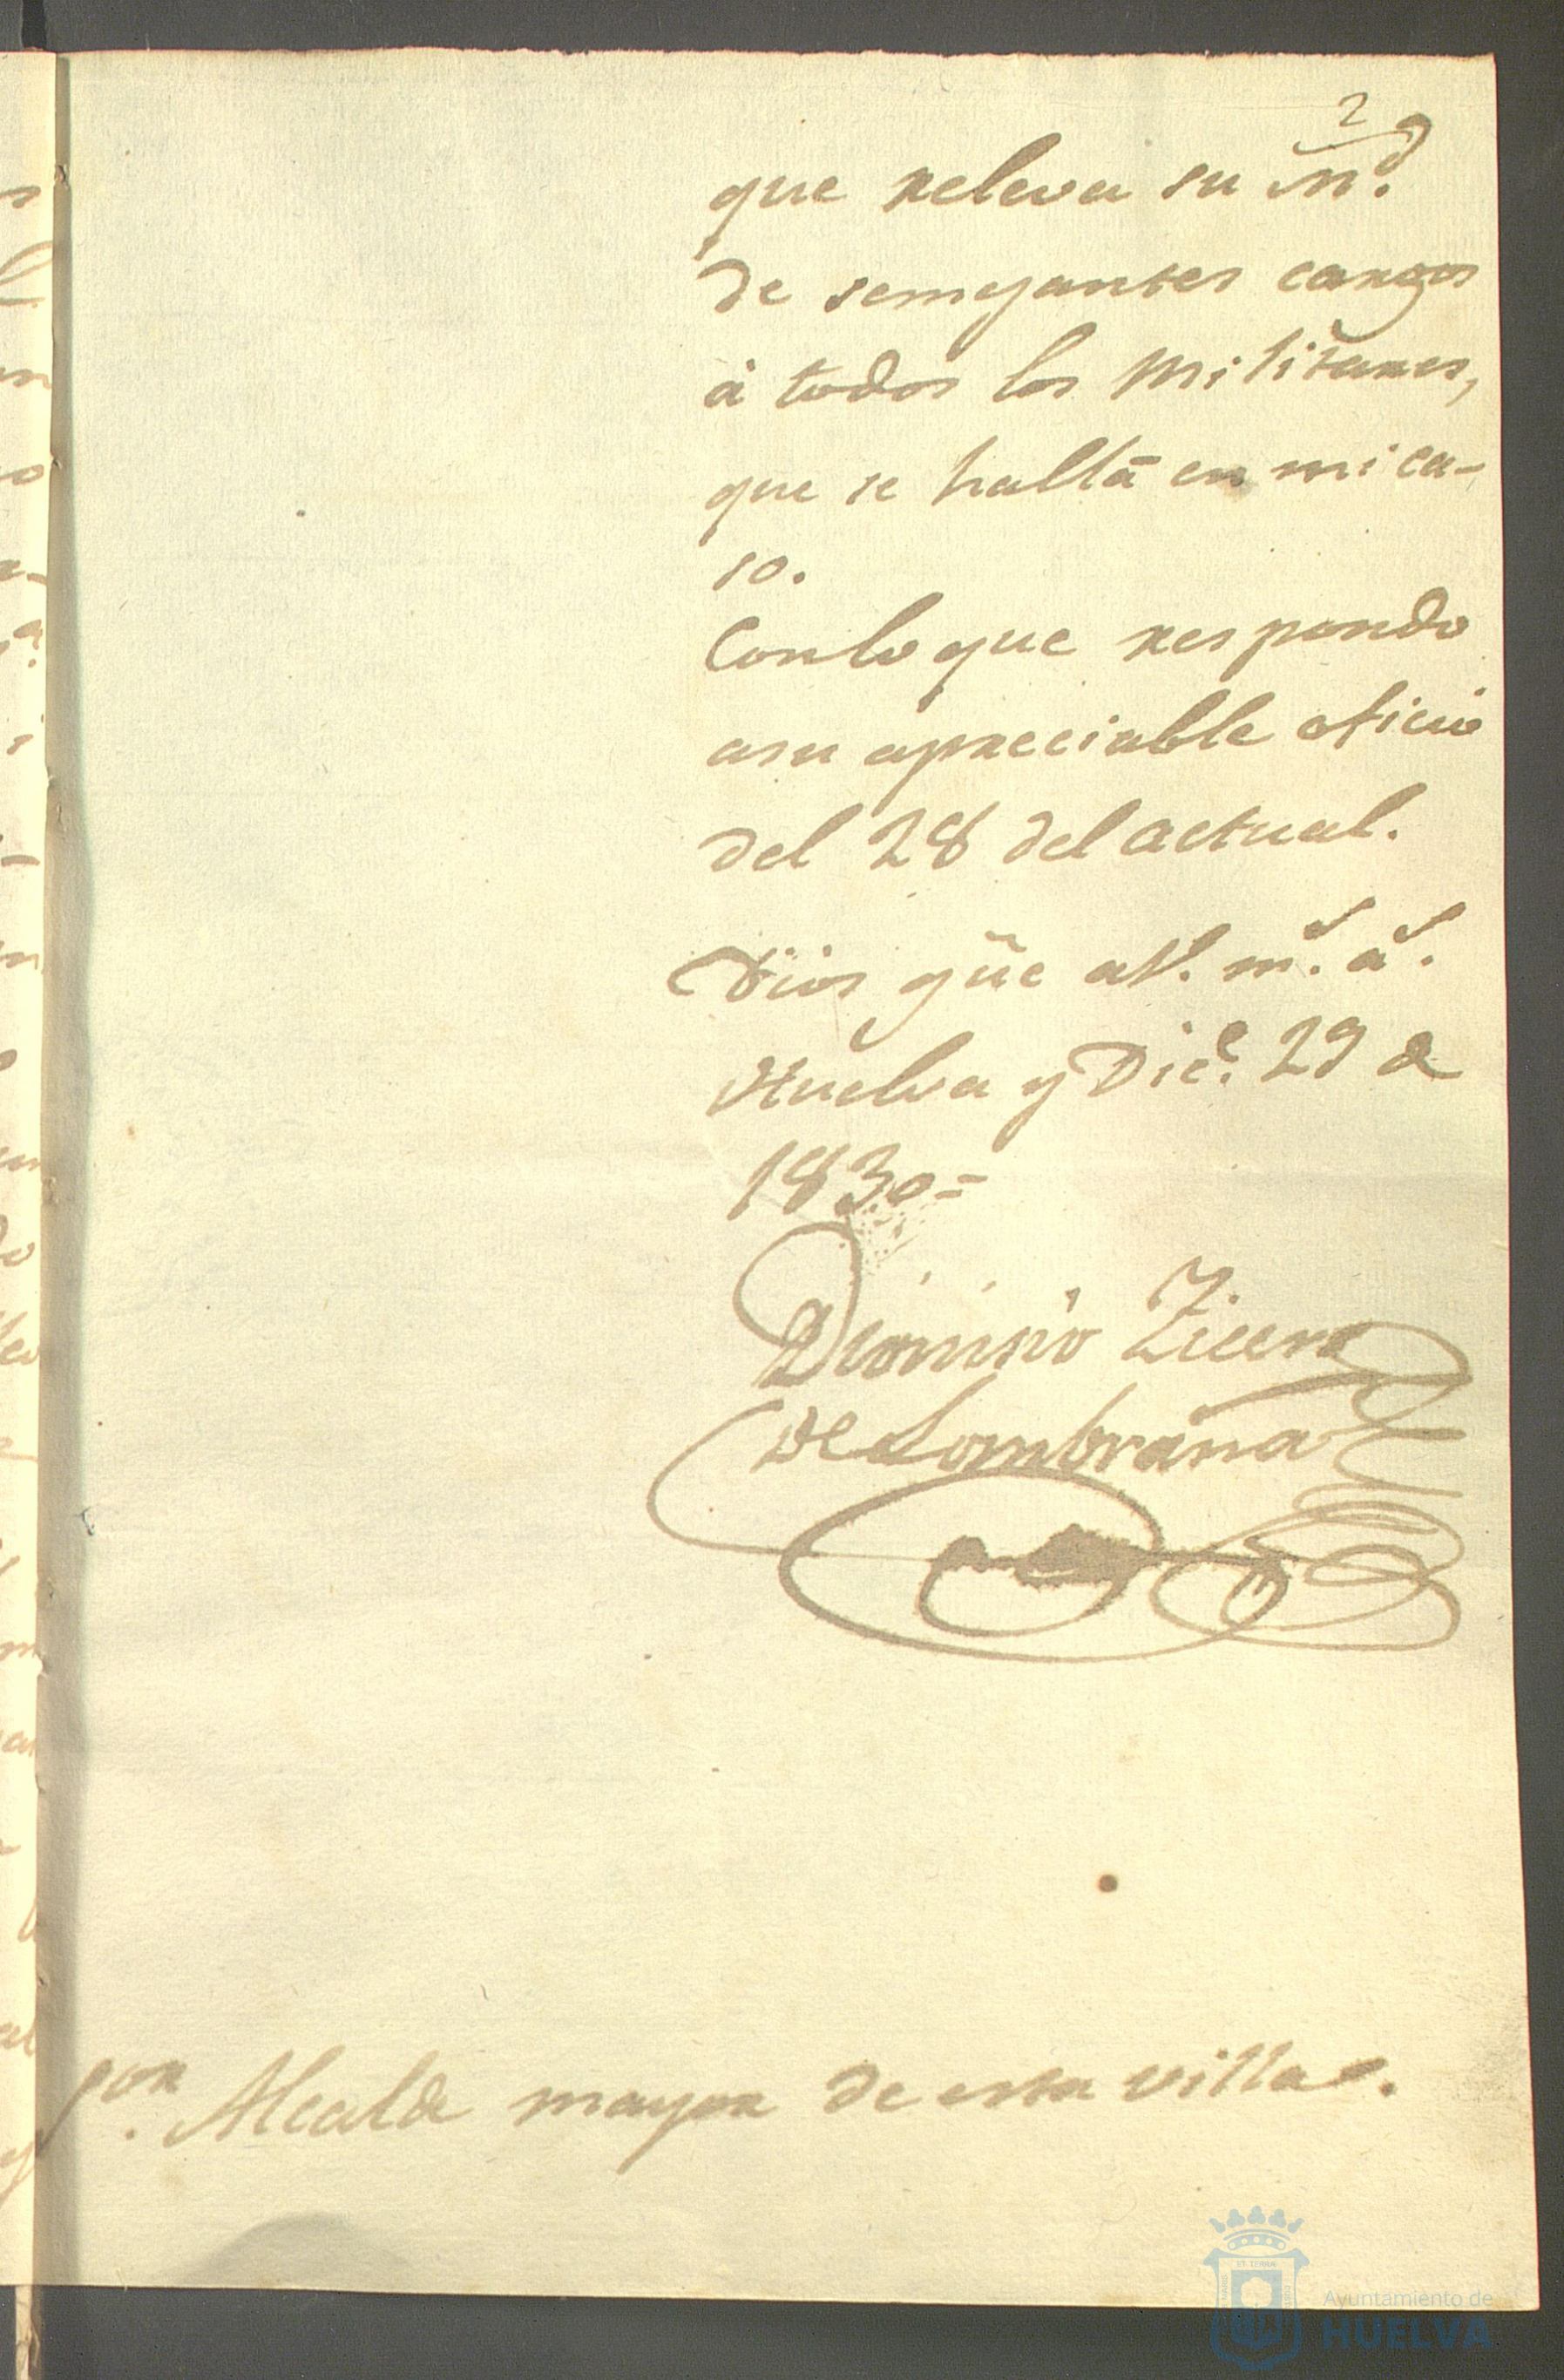 2
que releva su m̃.d
de semejantes cargos
á todos los Militares,
que se hallā en mi ca-
so.
Con lo que respondo
a su apreciable oficio
del 28 del actual.
Dios gũe a V. m.s a.s
Huelva y Dic.e 29 de
1830=
Dionisio
de Lombraña
Sor. Alcalde mayor de esta villa.
Ayuntamiento de
HUELVA